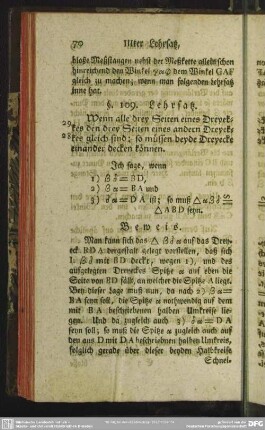 70 IIIter Lehrsatz,
bloße Meßstangen nebst der Meßkette allenthalben
hinreichend den Winkel γαβ dem Winkel GAF
gleich zu machen; wenn man folgenden Lehrsatz
inne hat.
§. 109. Lehrsatz.
Wenn alle drey Seiten eines Dreyek-
kes den drey Seiten eines andern Dreyek-
kes gleich sind; so müssen beyde Dreyecke
einander decken können.
Ich sage, wenn
1) β δ = BD,
2) β α = BA und
3) δ α = DA ist; so muß △ α β δ ≅
△ ABD seyn.
Beweis.
Man kann sich das △ β δ α auf das Drey-
eck BDA dergestalt gelegt vorstellen, daß sich
1. β δ mit BD decke, wegen 1), und des
aufgelegten Dreyeckes Spitze α auf eben die
Seite von BD fällt, an welcher die Spitze A liegt.
Bey dieser Lage muß nun, da nach 2) β α =
BA seyn soll, die Spitze α nothwendig auf dem
mit BA beschriebenen halben Umkreise lie-
gen. Und da zugleich auch 3) δ α = DA
seyn soll; so muß die Spitze α zugleich auch auf
den aus D mit DA beschriebnen halben Umkreis,
folglich gerade über dieser beyden Halbkreise
Schnei-